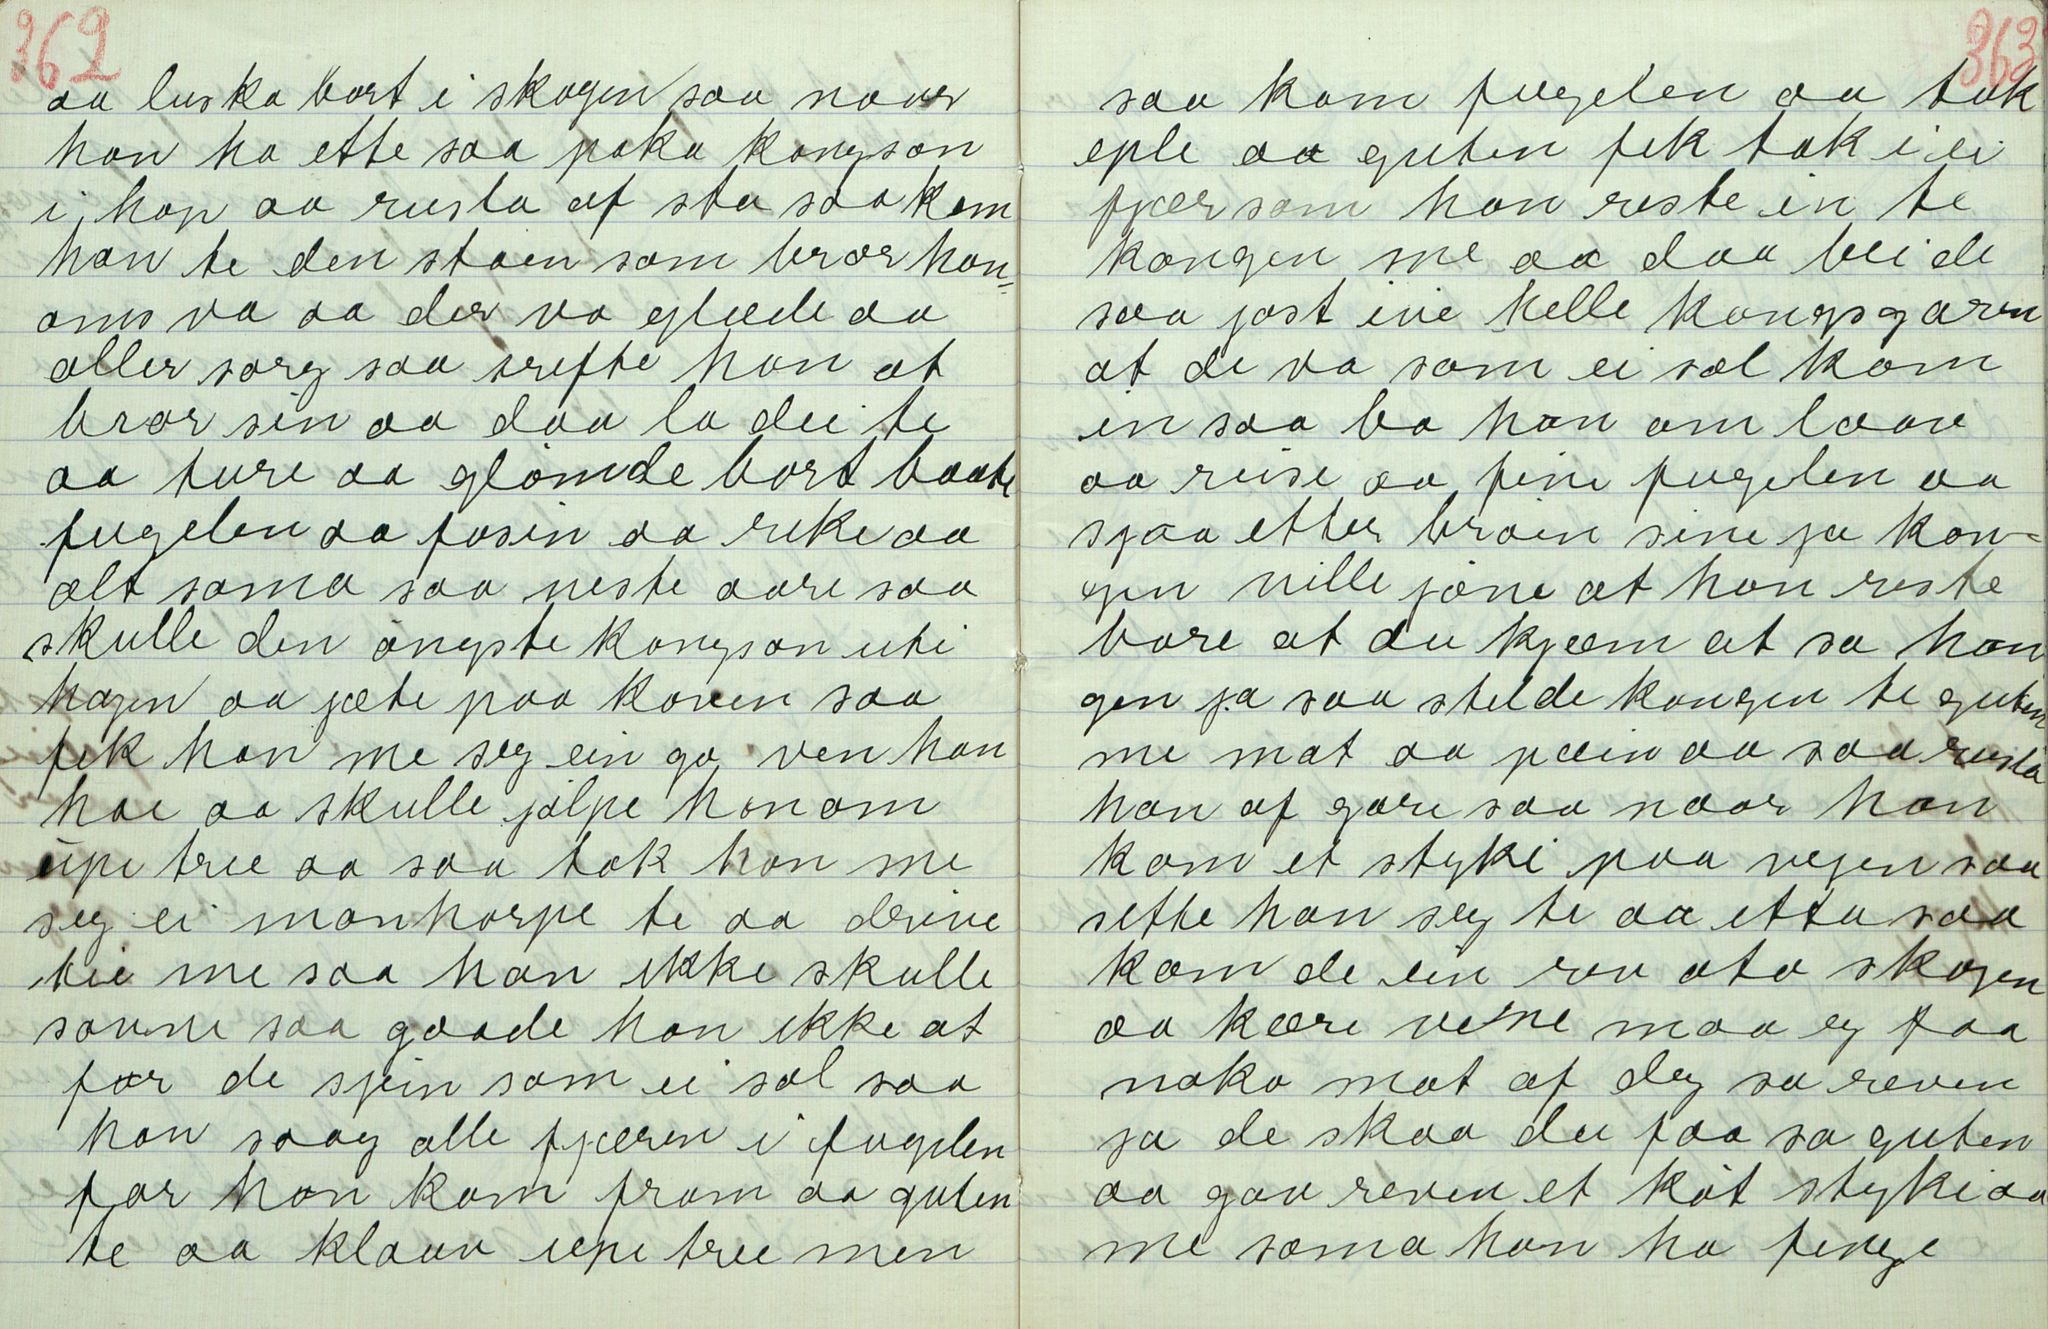 362
aa luska bort i skogen saa naar
han ha ette saa paka kongson
i hop aa rusla af sta saa kom
han te den staen som bror han=
oms va aa der va glæde aa
aller sorg saa trefte han at
bror sin aa daa la dei te
aa ture aa glömde bort baate
fugelen aa fosin aa rike aa
alt sama saa neste aare saa
skulle den öngste kongson uti
hagen aa jæte paa koven saa
fek han me seg ein go ven han
hae aa skulle jölpe honom
upi tree aa saa tok han me
seg ei monharpe te aa drive
tie me saa han ikke skulle
sovne saa gaade han ikke at
for de spin som ei sol saa
han saag alle fjæren i fugelen
for han kom from aa guten
te aa klaav upi tree men
363
saa kom fugelen aa tok
eple aa guten fek tak i ei
fjær som han reste in te
kongen me aa daa blei de
saa jost ive helle kongsgaren
at de va som ei sol kom
in saa ba han om laav
aa reise aa fine fugelen aa
sjaa etter broin sine ja kon=
gen ville jöne at han reste
bare at du kjæm at sa kon
gen ja saa stelde kongen te guten
me mat aa pæin aa saa rusla
han af gare saa naar han
kom et styki paa vegen saa
sette han seg te aa etta saa
kom de ein rev ato skogen
aa kære vene maa eg faa
noko mat af deg sa reven
ja de skaa du faa sa guten
aa gav reven et köt styki aa
me soma han ha fenge